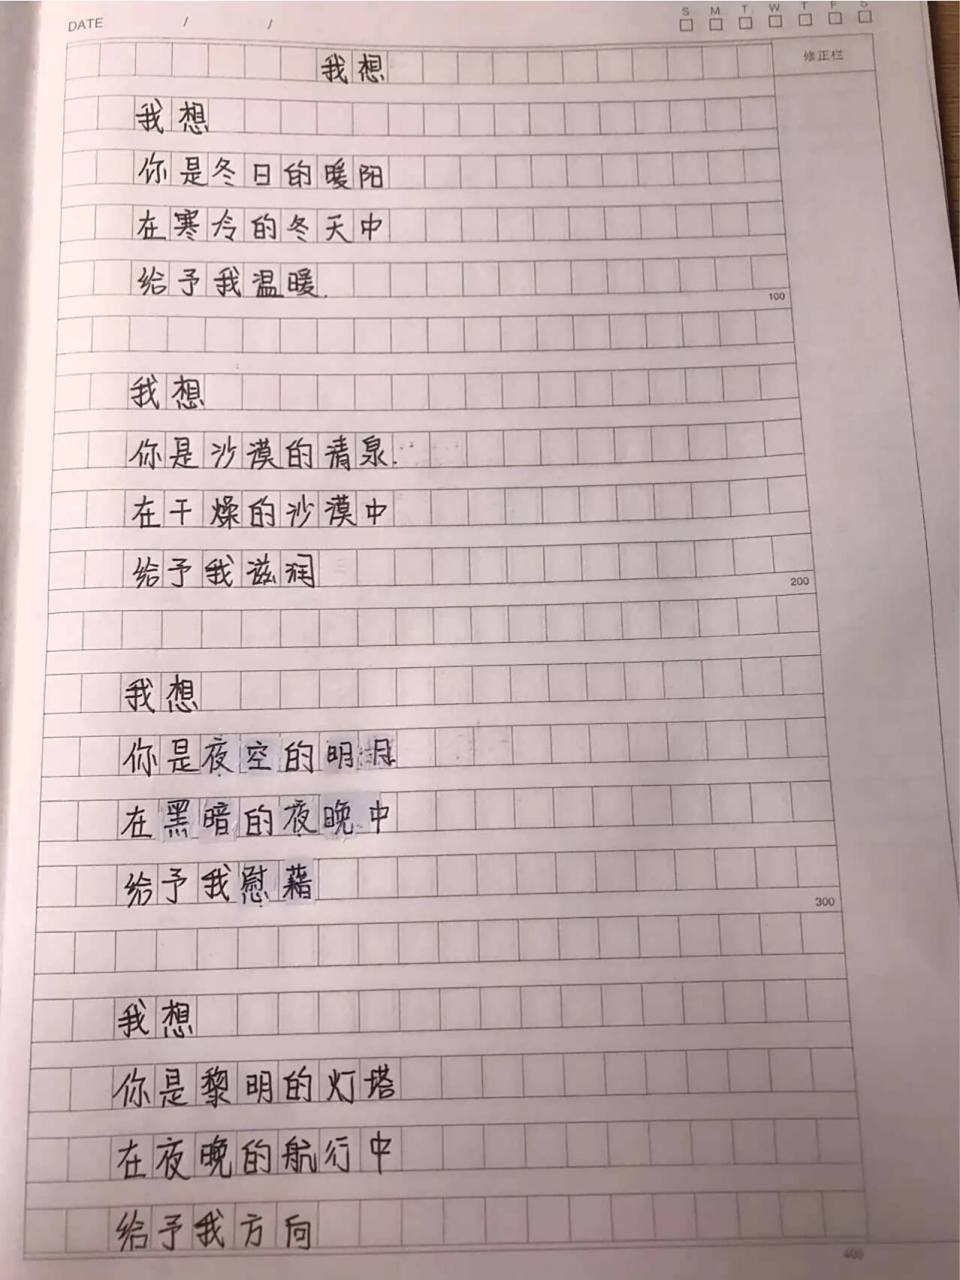 DATE / /
S M T W T F S
修正栏
我想
我想
你是冬日的暖阳
在寒冷的冬天中
给予我温暖.
100
我想
你是沙漠的清泉.
在干燥的沙漠中
给予我滋润
200
我想
你是夜空的明月
在黑暗的夜晚中
给予我慰藉
300
我想
你是黎明的灯塔
在夜晚的航行中
给予我方向
400